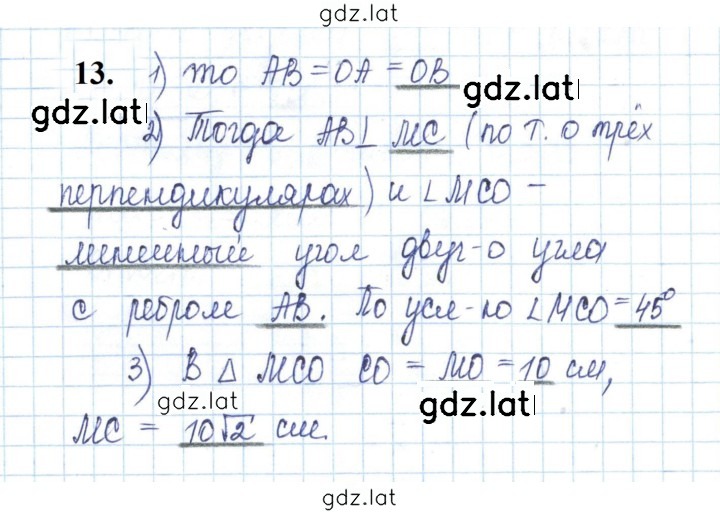 gdz.lat
13. 1) то AB = OA = OB
gdz.lat
gdz.lat
2) Тогда AB⊥ MC (по т. о трёх
перпендикулярах) и ∠MCO –
линейный угол двуг-о угла
с ребром AB. По усл-ю ∠MCO = 45°
3) В △ MCO CO = MO = 10 см,
gdz.lat
gdz.lat
MC = 10√2 см.
gdz.lat